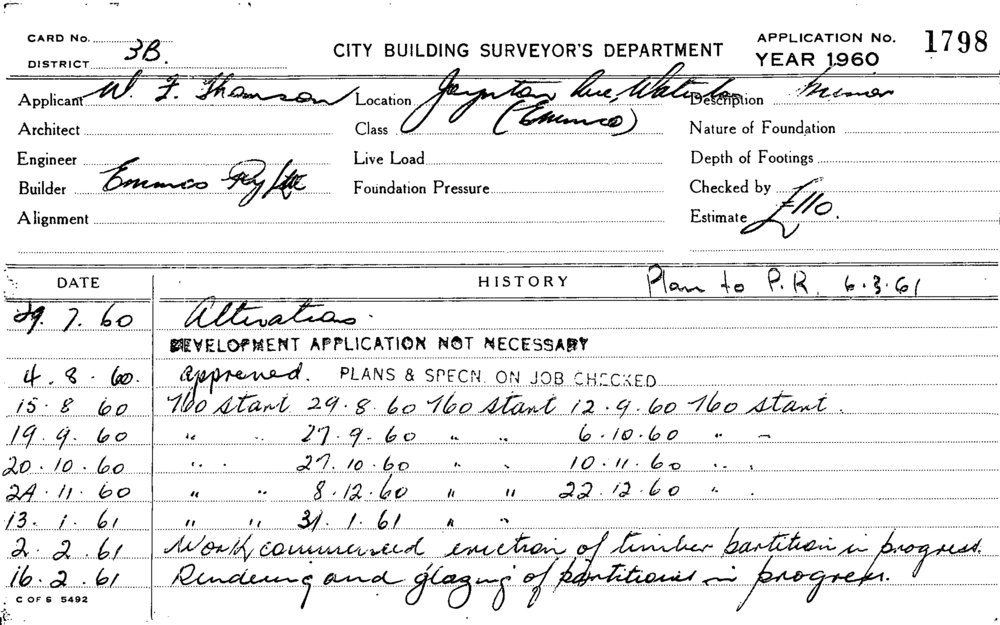 CARD No.
DISTRICT 3B.
CITY BUILDING SURVEYOR'S DEPARTMENT
APPLICATION No. 1798
YEAR 1960
Applicant W. F. Thomson Location Joynton Ave, Waterloo Description Minor
Architect Class (Emmco) Nature of Foundation
Engineer Live Load Depth of Footings
Builder Emmco Pty Ltd Foundation Pressure Checked by
Alignment Estimate £110.
DATE HISTORY Plan to P.R. 6.3.61
29.7.60 Alterations.
DEVELOPMENT APPLICATION NOT NECESSARY
4.8.60. approved. PLANS & SPECN. ON JOB CHECKED
15.8.60 No start 29.8.60 No start 12.9.60 No start.
19.9.60 " " 27.9.60 " " 6.10.60 " "
20.10.60 " " 27.10.60 " " 10.11.60 " "
24.11.60 " " 8.12.60 " " 22.12.60 " "
13.1.61 " " 31.1.61 " "
2.2.61 Work commenced erection of timber partition in progress.
16.2.61 Rendering and glazing of partitions in progress.
C OF S 5492